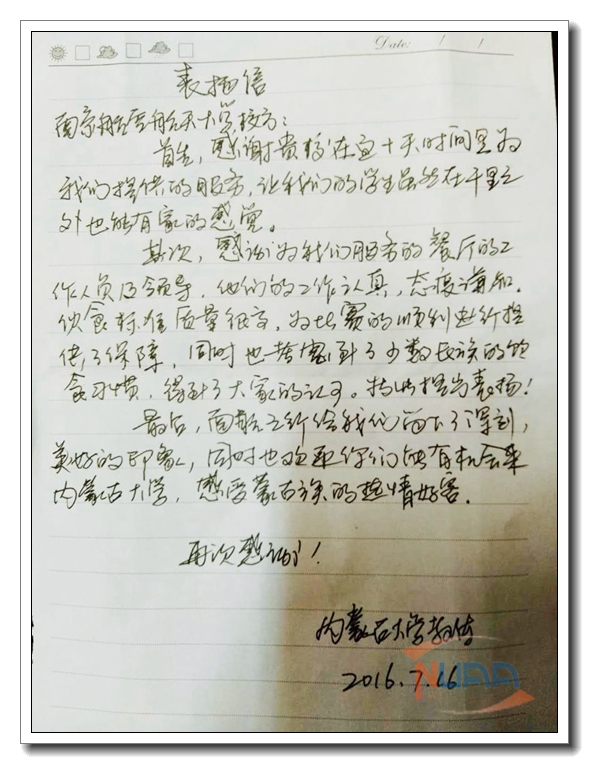 Date: / /
表扬信
南京航空航天大学校方:
首先,感谢贵校在这十天时间里为
我们提供的服务,让我们的学生虽然在千里之
外也能有家的感觉。
其次,感谢为我们服务的餐厅的工
作人员及领导,他们的工作认真,态度谦和.
伙食标准质量很高,为比赛的顺利进行提
供了保障,同时也考虑到了少数民族的饮
食习惯,得到了大家的认可。特此提出表扬!
最后,南航之行给我们留下了深刻,
美好的印象,同时也欢迎你们能有机会来
内蒙古大学,感受蒙古族的热情好客.
再次感谢!
内蒙古大学教体
2016.7.16
NUAA